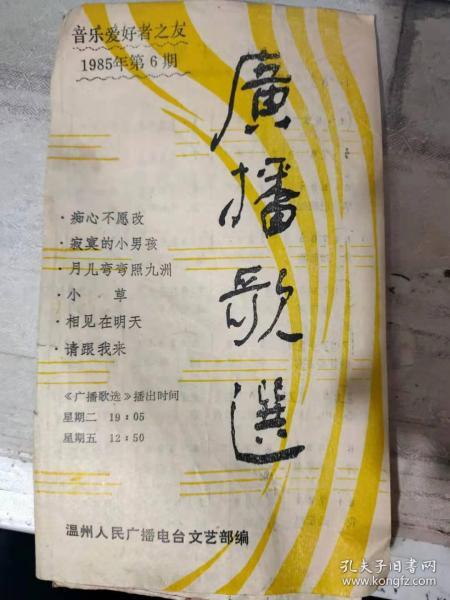 音乐爱好者之友
1985年第6期
廣播歌選
·痴心不愿改
·寂寞的小男孩
·月儿弯弯照九洲
·小 草
·相见在明天
·请跟我来
《广播歌选》播出时间
星期二 19:05
星期五 12:50
温州人民广播电台文艺部编
孔夫子旧书网
www.kongfz.com